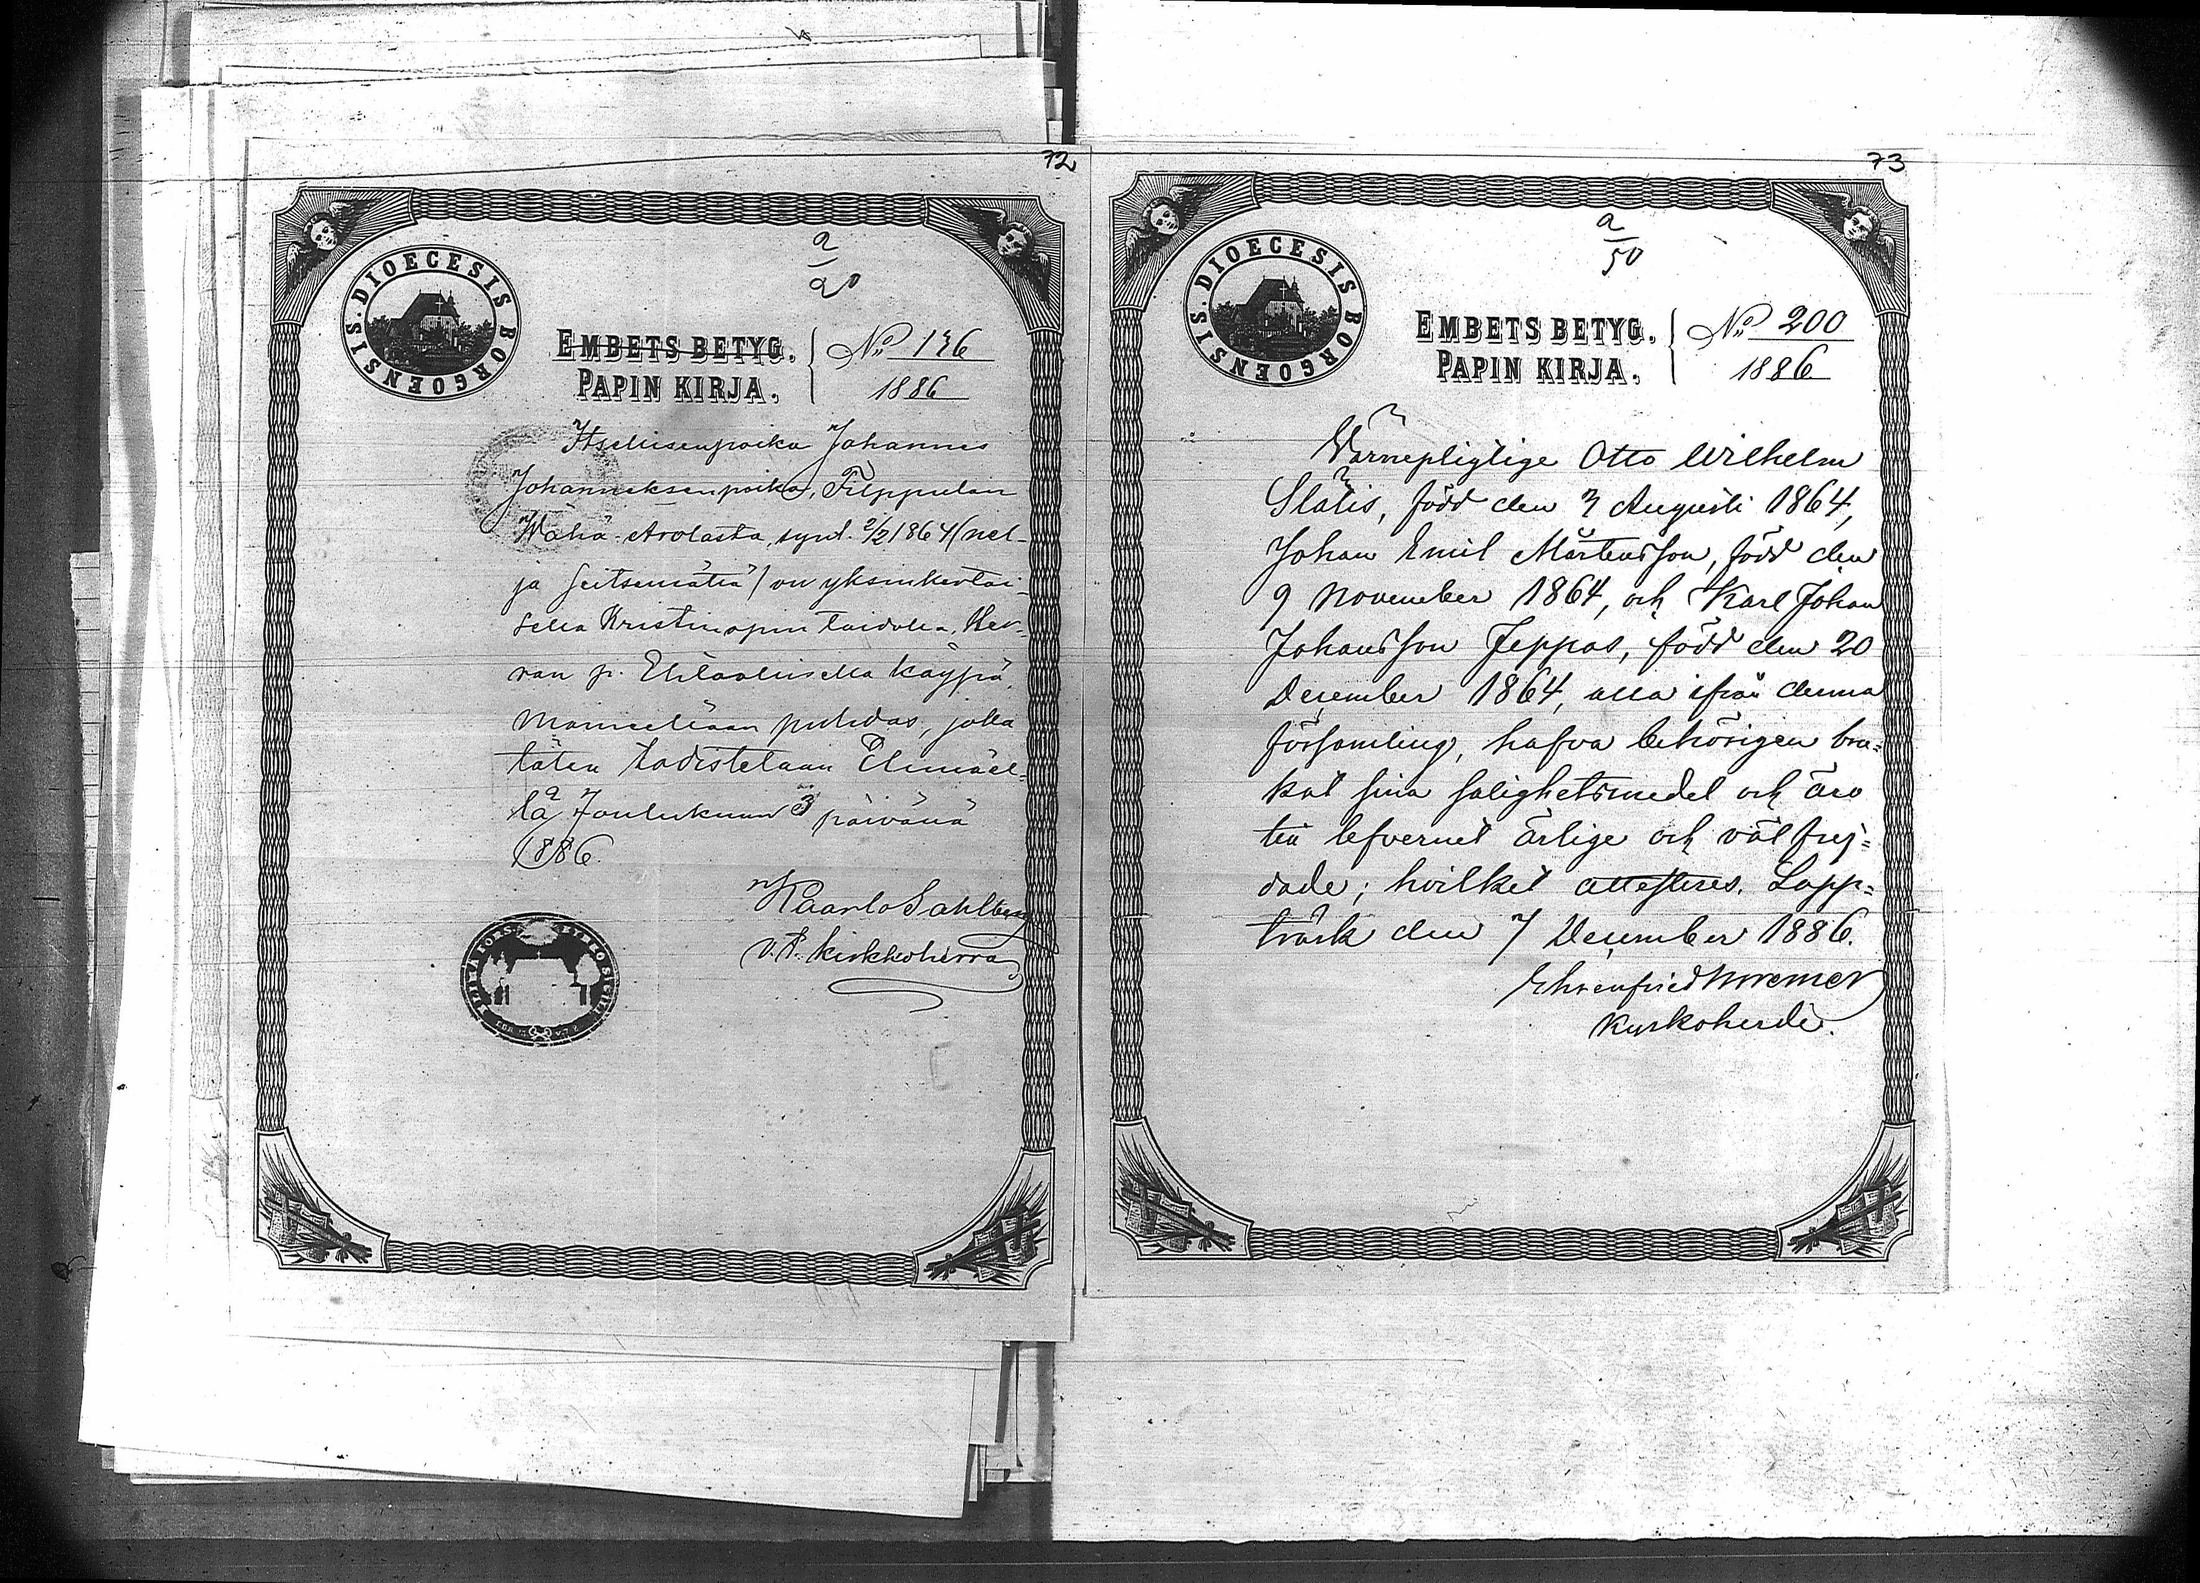 72
DIOECESIS BORGOENSIS.
a
20
EMBETS BETYG.
PAPIN KIRJA.
No 136
1886
Itsellisenpoika Johannes
Johanneksenpoika, Filppulan
Wähä-Arolasta, synt. 2/2 1864 (nel-
ja seitsemättä) on yksinkertai-
sella Kristinopin taidolla, Her-
ran p. Ehtoollisella käypä,
maineeltaan puhdas, jolla
täten todistetaan Elimäel-
lä Joulukuun 3 päivänä
1886.
Kaarlo Sahlberg
v.t. kirkkoherra
73
DIOECESIS BORGOENSIS.
a
50
EMBETS BETYG.
PAPIN KIRJA.
No 200
1886
Värnepligtige Otto Wilhelm
Slätis, född den 3 Augusti 1864,
Johan Emil Mårtensson, född den
9 November 1864, och Karl Johan
Johansson Jeppas, född den 20
December 1864, alla ifrån denna
församling, hafva behörigen bru-
kat sina salighetsmedel och äro
till lefvernet ärlige och väl frej-
dade; hvilket attesteres. Lapp-
träsk den 7 December 1886.
Ehrenfried
Kyrkoherde.